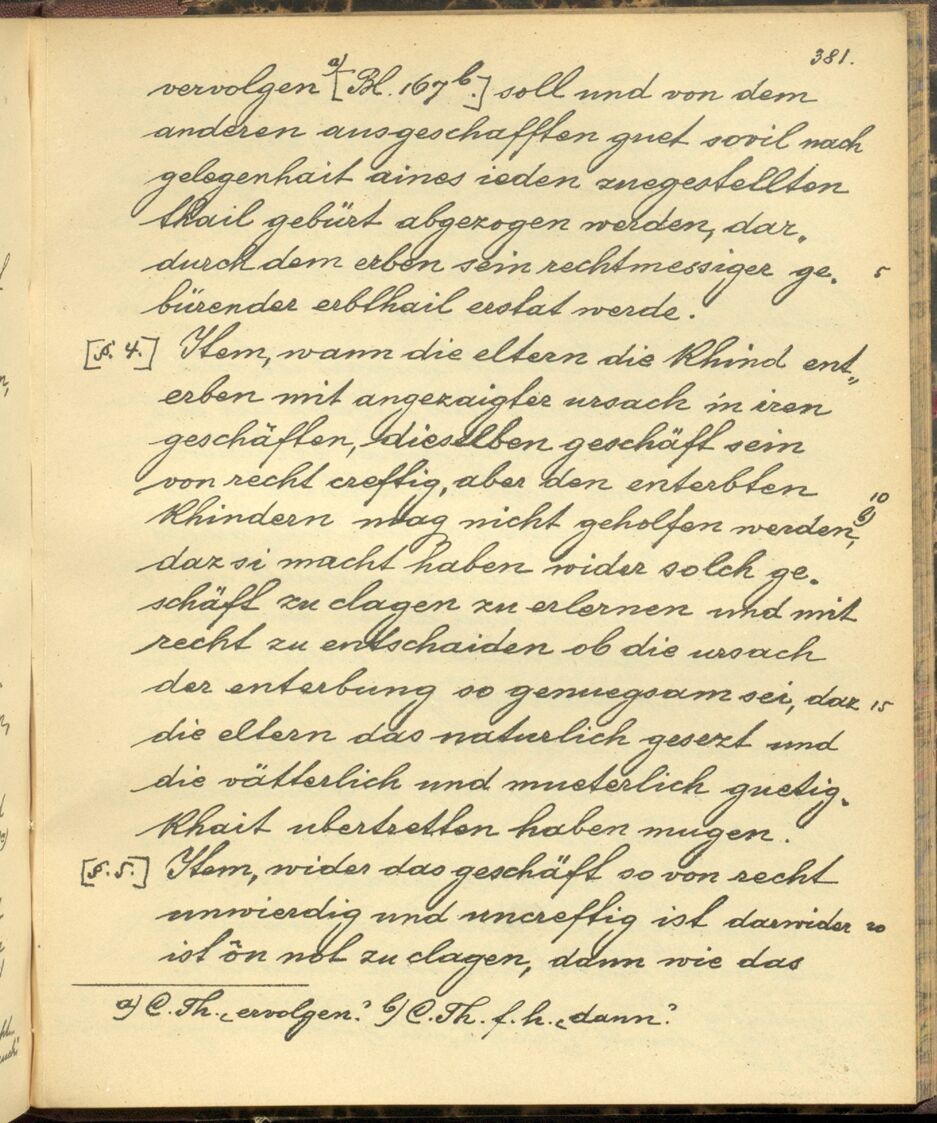 381.
vervolgen a) [Bl. 167 b.] soll und von dem
anderen ausgeschafften guet sovil nach
gelegenhait aines ieden zuegestellten
thail gebürt abgezogen werden, dar„
durch dem erben sein rechtmessiger ge„ 5
bürender erbthail erstat werde.
[§. 4.] Item, wann die eltern die khind ent„
erben mit angezaigter ursach in iren
geschäften, dieselben geschäft sein
von recht creftig, aber den enterbten
khindern mag nicht geholfen werden, b) 10
daz si macht haben wider solch ge„
schäft zu clagen zu erlernen und mit
recht zu entschaiden ob die ursach
der enterbung so genuegsam sei, daz 15
die eltern das naturlich gesezt und
die vätterlich und mueterlich guetig„
khait ubertretten haben mugen.
[§. 5.] Item, wider das geschäft so von recht
unwierdig und uncreftig ist darwider 20
ist ôn not zu clagen, dann wie das
a) C. Th. „ervolgen." b) C. Th. f. h. „dann."